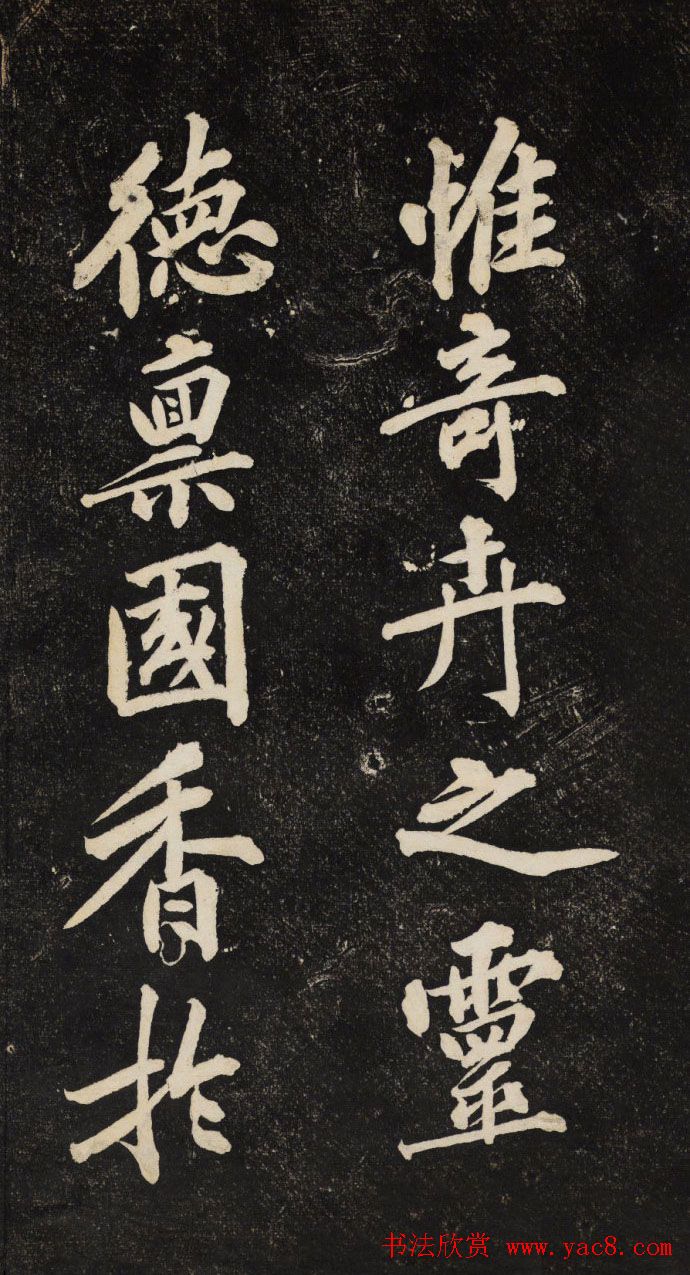 惟奇卉之靈
德稟國香於
书法欣赏 www.yac8.com